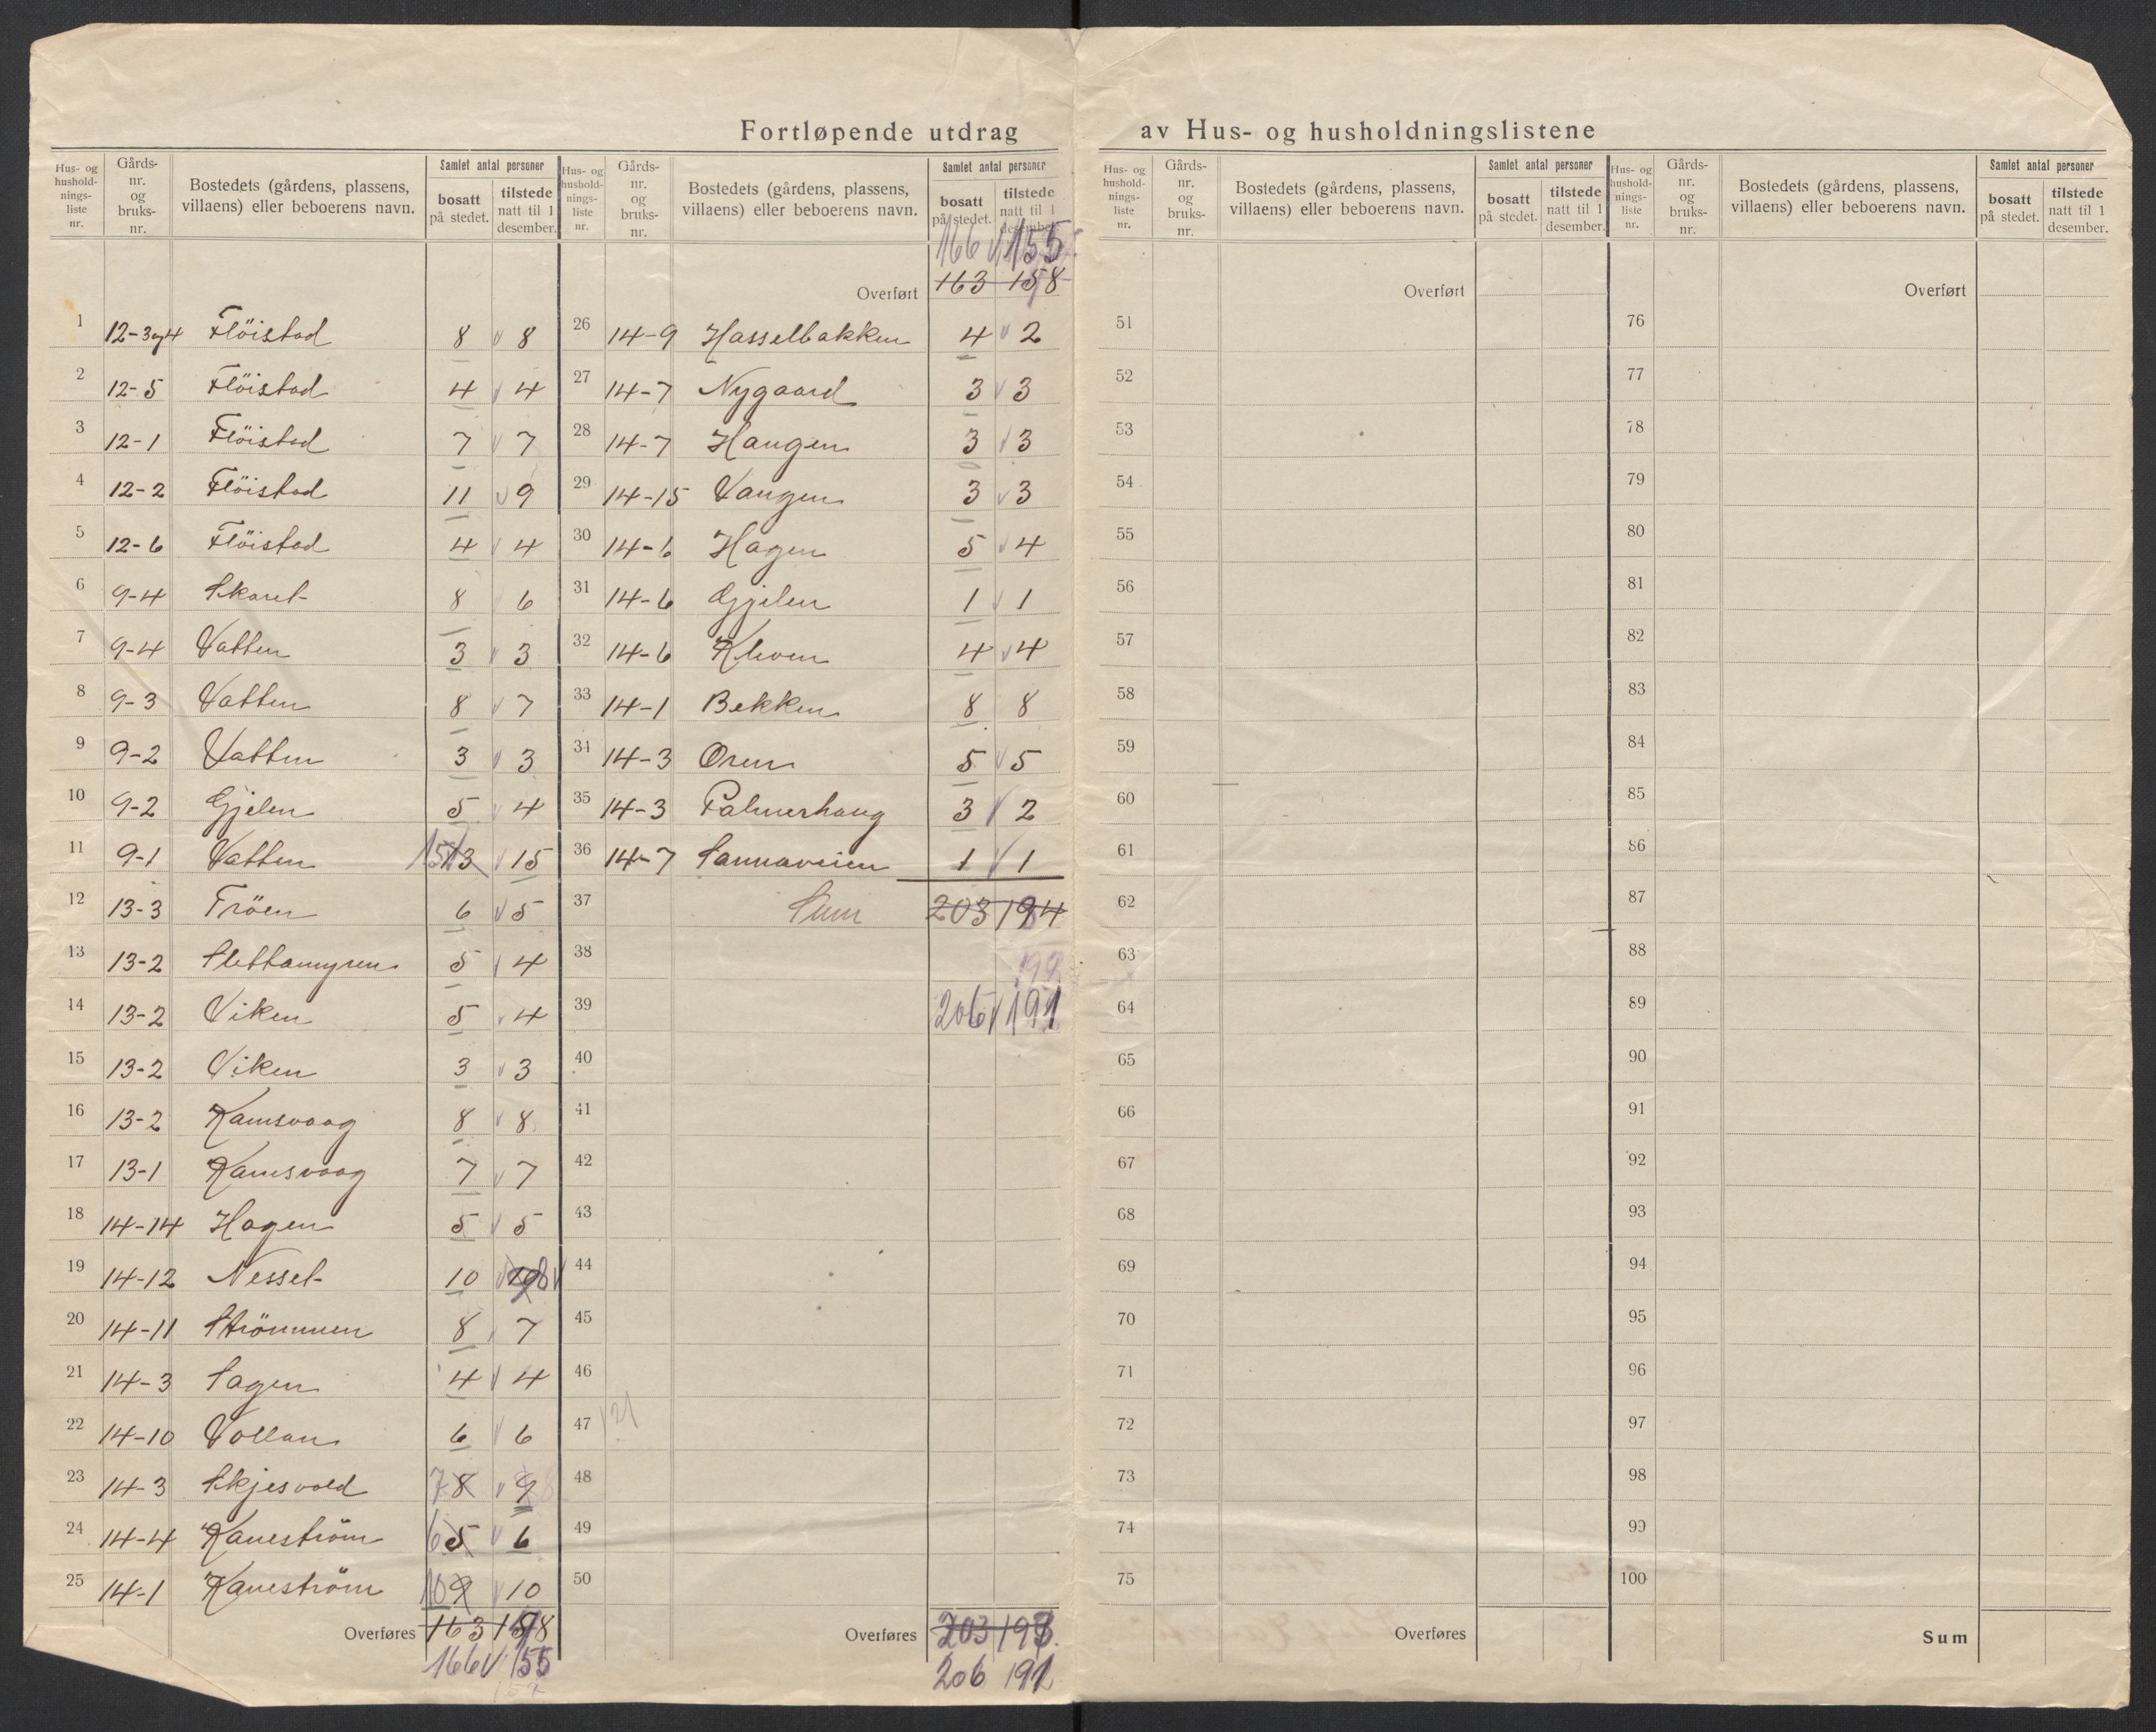 Fortløpende utdrag av Hus- og husholdningslistene
Hus- og hushold- nings- liste nr. | Gårds- nr. og bruks- nr. | Bostedets (gårdens, plassens, villaens) eller beboerens navn. | Samlet antal personer | bosatt på stedet. | tilstede natt til 1 desember.
1 12-3og4 Flöistad 8 v 8
2 12-5 Flöistad 4 v 4
3 12-1 Flöistad 7 v 7
4 12-2 Flöistad 11 v 9
5 12-6 Flöistad 4 v 4
6 9-4 Skaret 8 v 6
7 9-4 Vatten 3 v 3
8 9-3 Vatten 8 v 7
9 9-2 Vatten 3 v 3
10 9-2 Gjelen 5 v 4
11 9-1 Vatten 15 13 v 15
12 13-3 Tröen 6 v 5
13 13-2 Slettamyren 5 v 4
14 13-2 Viken 5 v 4
15 13-2 Viken 3 v 3
16 13-2 Ramsvaag 8 v 8
17 13-1 Ramsvaag 7 v 7
18 14-14 Hagen 5 v 5
19 14-12 Nesset 10 v 8 v
20 14-11 Strömmen 8 v 7
21 14-3 Sagen 4 v 4
22 14-10 Vollan 6 v 6
23 14-3 Skjesvold 7 8 v 9 8
24 14-4 Kaneström 6 5 v 6
25 14-1 Kaneström 10 9 v 10
Overføres 163 158
166 v 155
157
Hus- og hushold- nings- liste nr. | Gårds- nr. og bruks- nr. | Bostedets (gårdens, plassens, villaens) eller beboerens navn. | Samlet antal personer | bosatt på stedet. | tilstede natt til 1 desember.
166 v 155
Overført 163 158
26 14-9 Hasselbakken 4 v 2
27 14-7 Nygaard 3 v 3
28 14-7 Haugen 3 v 3
29 14-15 Vangen 3 v 3
30 14-6 Hagen 5 v 4
31 14-6 Gjelen 1 v 1
32 14-6 Kleven 4 v 4
33 14-1 Bekken 8 8
34 14-3 Oren 5 v 5
35 14-3 Palmerhaug 3 v 2
36 14-7 Sannaveien 1 v 1
37 Sum 203 194
38
39 206 v 191
40
41
42
43
44
45
46
47 21
48
49
50
Overføres 203 193
206 191
Hus- og hushold- nings- liste nr. | Gårds- nr. og bruks- nr. | Bostedets (gårdens, plassens, villaens) eller beboerens navn. | Samlet antal personer | bosatt på stedet. | tilstede natt til 1 desember.
Overført
51
52
53
54
55
56
57
58
59
60
61
62
63
64
65
66
67
68
69
70
71
72
73
74
75
Overføres
Hus- og hushold- nings- liste nr. | Gårds- nr. og bruks- nr. | Bostedets (gårdens, plassens, villaens) eller beboerens navn. | Samlet antal personer | bosatt på stedet. | tilstede natt til 1 desember.
Overført
76
77
78
79
80
81
82
83
84
85
86
87
88
89
90
91
92
93
94
95
96
97
98
99
100
Sum